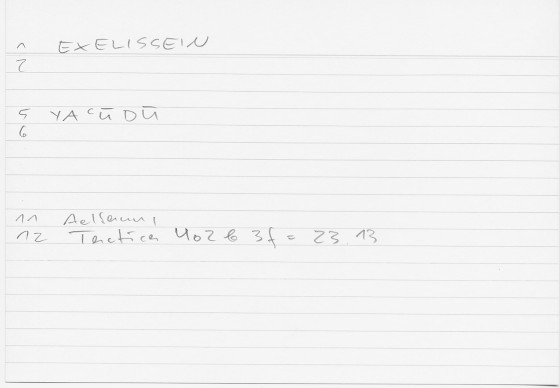 1 EXELISSEIN
2
5 YAʿŪDŪ
6
11 Aelianus
12 Tactica 402 b 3f = 23.13